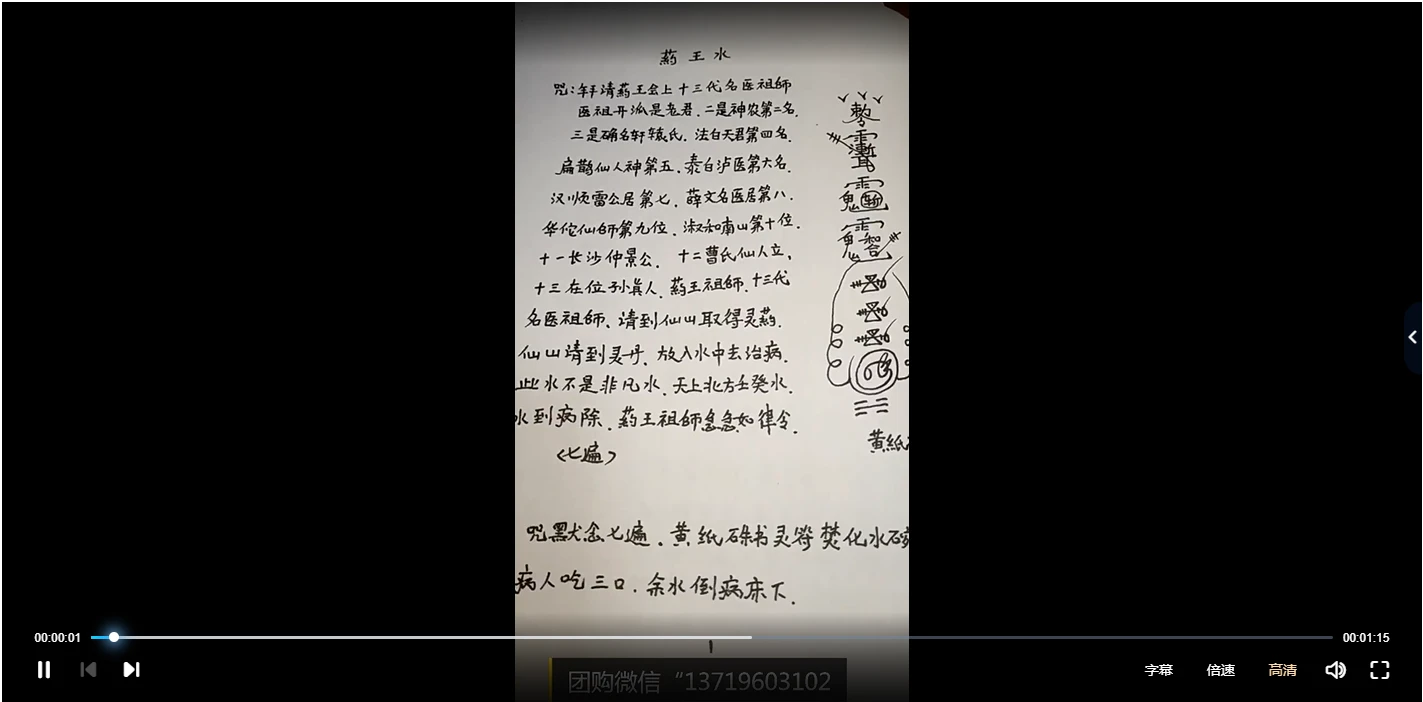 药王水
咒:奉请药王会上十三代名医祖師
医祖开派是老君.二是神农第二名.
三是确名轩辕氏.法白天君第四名.
扁鹊仙人神第五.泰白泸医第六名.
汉顺雷公居第七.薛文名医居第八.
华佗仙師第九位.淑和南山第十位.
十一长沙仲景公.十二曹氏仙人立,
十三在位孙真人.药王祖師.十三代
名医祖師、请到仙山取得灵药.
仙山请到灵丹.放入水中去治病.
此水不是非凡水.天上北方壬癸水.
水到病除.药王祖師急急如律令.
<七遍>
黄纸
咒默念七遍.黄纸硃书灵符焚化水碗
病人吃三口.余水倒病床下.
团购微信“13719603102
00:00:01
00:01:15
字幕 倍速 高清